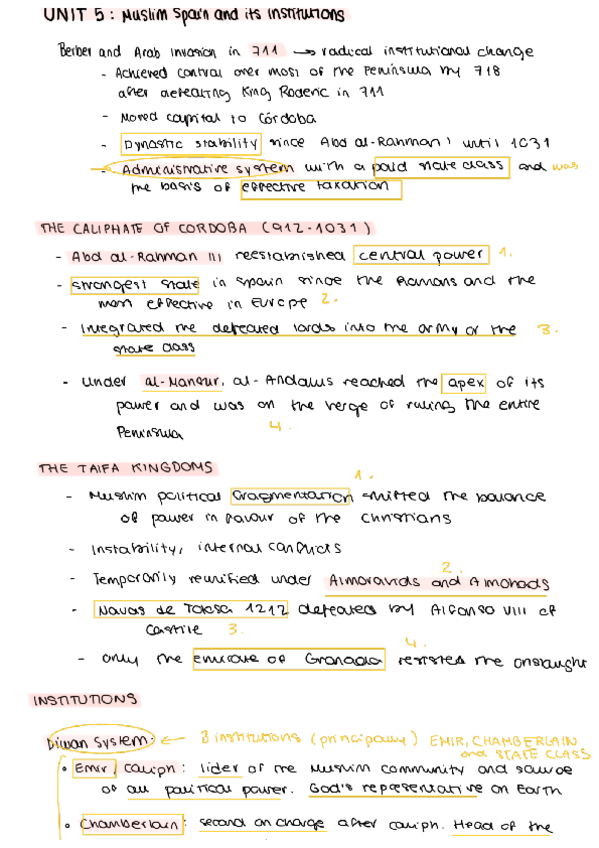 UNIT 5: Muslim Spain and its institutions
Berber and Arab Invasion in 711 → radical institutional change
- Achieved control over most of the Peninsula by 718
after defeating King Roderic in 711
- Moved capital to Córdoba
- Dynastic stability since Abd al-Rahman I until 1031
- Administrative system with a paid state class and was
the basis of effective taxation
THE CALIPHATE OF CORDOBA (912-1031)
- Abd al-Rahman III reestablished central power 1.
- strongest state in Spain since the Romans and the
most effective in Europe 2.
- Integrated the defeated lords into the army or the 3.
state class
- Under al-Mansur, al-Andalus reached the apex of its
power and was on the verge of ruling the entire
Peninsula 4.
THE TAIFA KINGDOMS
1.
- Muslim political fragmentation shifted the balance
of power in favour of the Christians
- Instability, internal conflicts
2.
- Temporarily reunified under Almoravids and Almohads
- Navas de Tolosa 1212 defeated by Alfonso VIII of
Castile 3.
4.
- only the emirate of Granada resisted the onslaught
INSTITUTIONS
Diwan System: ← 3 institutions (principally) EMIR, CHAMBERLAIN
and STATE CLASS
• Emir / caliph: lider of the Muslim community and source
of all political power. God's representative on Earth
• Chamberlain: second on charge after caliph. Head of the